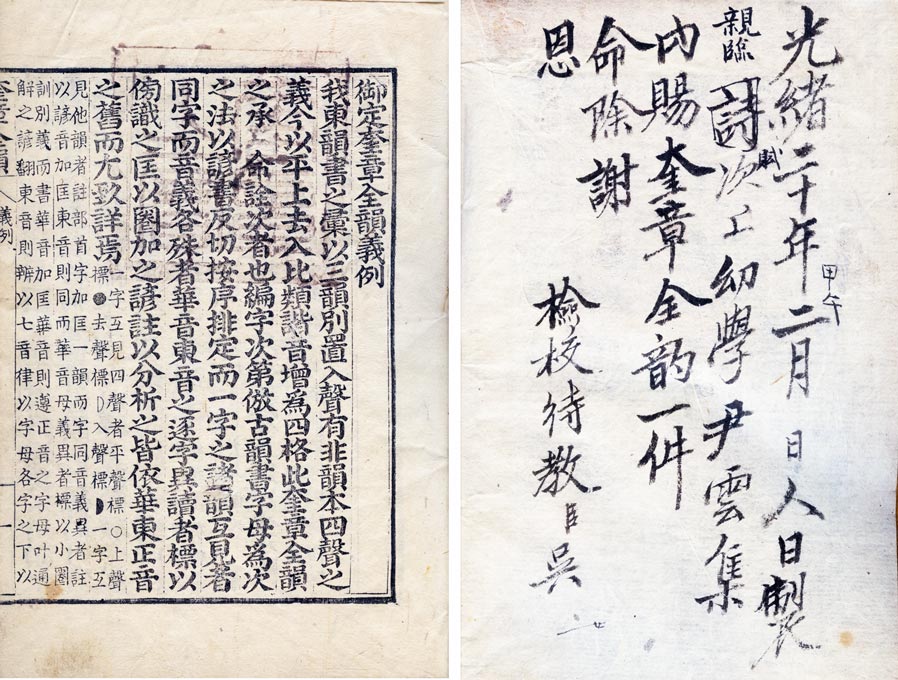 光緒二十年甲午二月 日人日製
親臨詩賦次上幼學尹雲集
內賜奎章全韵一件
命除謝
恩
檢校待教臣吳
御定奎章全韻義例
我東韻書之彙以三韻別置入聲有非韻本四聲之
義今以平上去入比類諧音增為四格此奎章全韻
之承 命詮次者也編字次第倣古韻書字母為次
之法以諺書反切按序排定而一字之諸韻互見者
同字而音義各殊者華音東音之逐字異讀者標以
傍識之匡以圈加之諺註以分析之皆依華東正音
之舊而尤致詳焉
一字互見四聲者平聲標○上聲
標●去聲標◗入聲標◗一字互
見他韻者註部首字加匡一韻而字同音義異者註
以諺音加匡東音則同而華音母義異者標以小圈
訓別義而書華音加匡華音則遵正音之字母叶通
解之諺翻東音則辨以七音律以字母各字之下以
奎章全韻 義例 一